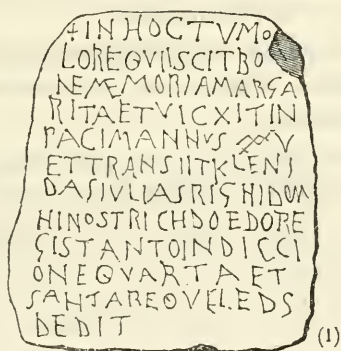 + IN HOC TVMO
LORE QVIISCIT BO
NE MEMORIA MARGA
RITA ET VICXIT IN
PACI M ANNVS XXXV
ET TRANSIIT KLENS
DAS IVLIAS RIGHI DOM
HI NOSTRI CHDOEDORE
GIS TANTO INDICCI
ONE QVARTA ET
SANTA REQVELEDS
DEDIT
(1)